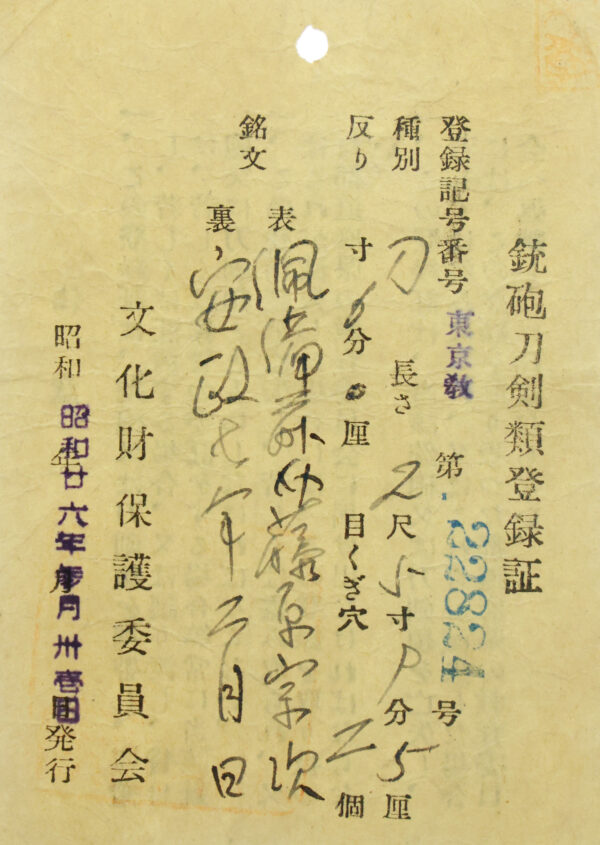 銃砲刀剣類登録証
登録記号番号 東京教 第 22824 号
種別 刀 長さ 2尺 寸 分 5厘
反り 寸 分 厘 目くぎ穴 二個
銘文 表 備前介藤原宗次
裏 安政七年二月日
文化財保護委員会
昭和 年 月 日発行
昭和廿六年参月卅壱日